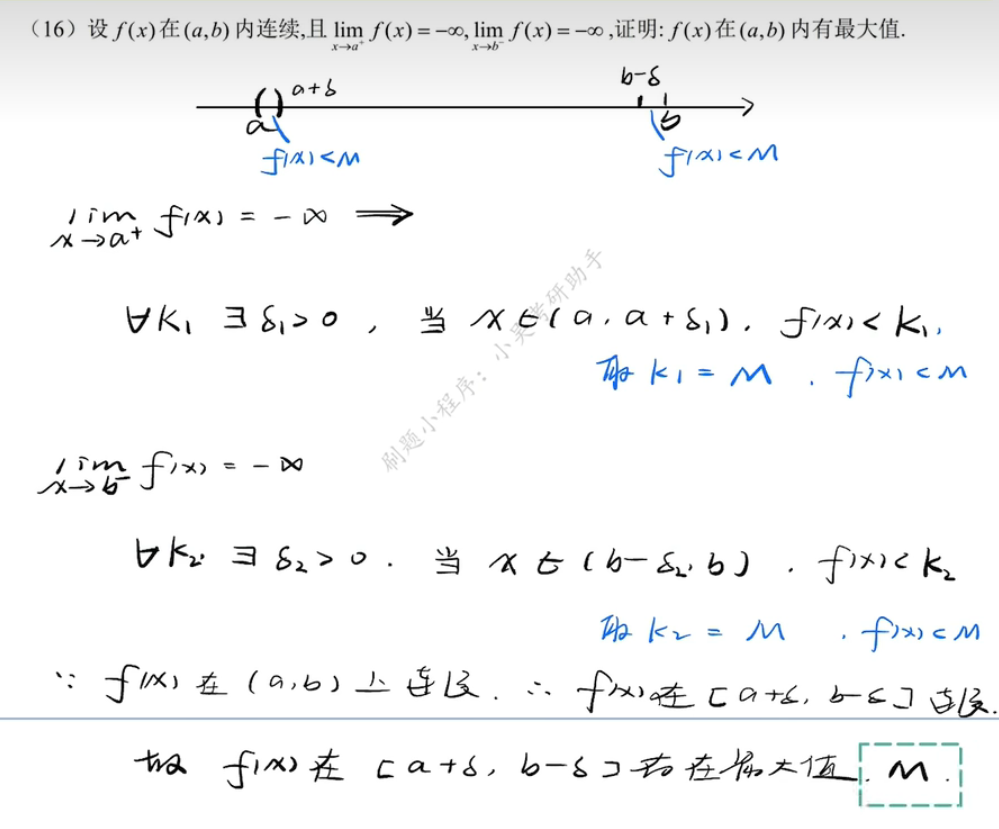 (16) 设 f(x) 在 (a,b) 内连续,且 lim_{x→a⁺} f(x) = −∞, lim_{x→b⁻} f(x) = −∞ ,证明: f(x) 在 (a,b) 内有最大值.
( ) a+δ b−δ
a b
f(x)<M f(x)<M
lim_{x→a⁺} f(x) = −∞ ⟹
∀K₁ ∃δ₁>0 , 当 x∈(a, a+δ₁), f(x)<K₁,
取 K₁ = M , f(x)<M
lim_{x→b⁻} f(x) = −∞
∀K₂, ∃δ₂>0. 当 x∈(b−δ₂, b) , f(x)<K₂
取 K₂ = M , f(x)<M
∵ f(x) 在 (a,b) 上连续. ∴ f(x) 在 [a+δ, b−δ] 连续.
故 f(x) 在 [a+δ, b−δ] 存在最大值. M.
刷题小程序：小吴考研助手